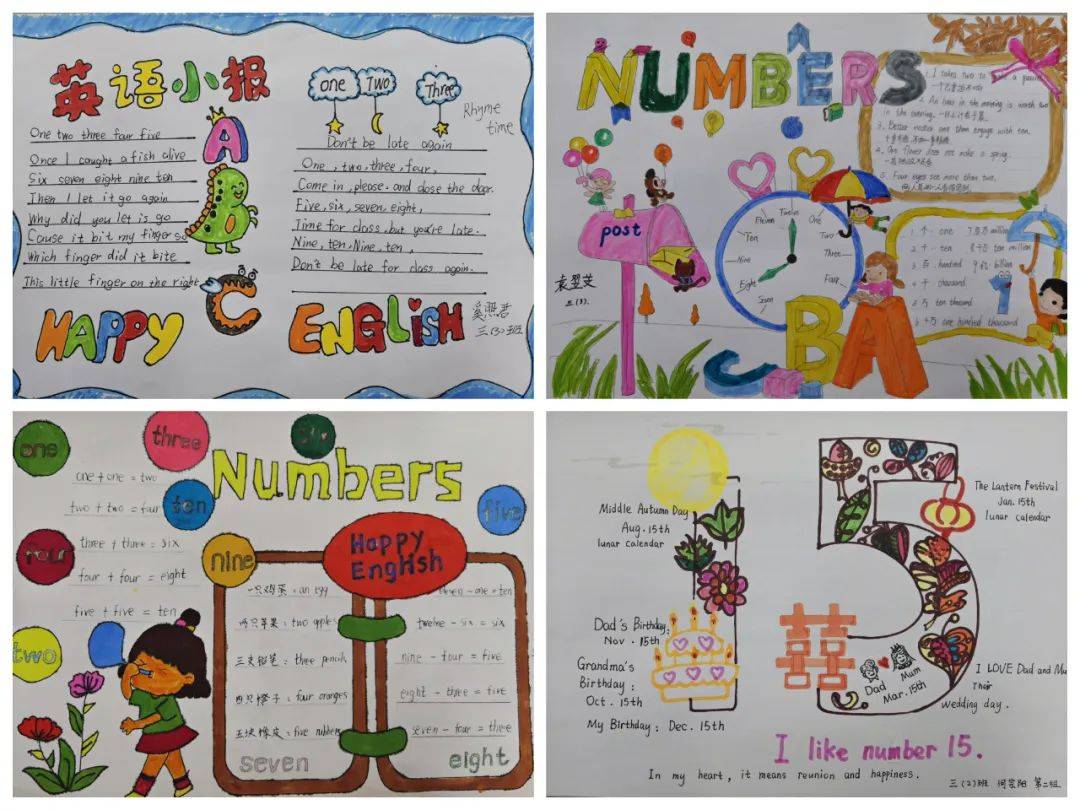 英语小报
One two three four five
Once I caught a fish alive
Six seven eight nine ten
Then I let it go again
Why did you let is go
Cause it bit my finger so
Which finger did it bite
This little finger on the right
A
B
C
one
Two
Three
Rhyme
time
Don't be late again
One, two, three, four,
Come in, please. and close the door.
Five, six, seven, eight,
Time for class, but you're late.
Nine, ten, Nine, ten,
Don't be late for class again.
HAPPY ENGLISH
三(3)班
NUMBERS
1. I takes two to a
2. An hour in the morning is worth two
in the evening.
3. Better master one than engage with ten.
4. One flower does not make a spring.
5. Four eyes see more than two.
post
Eleven
Twelve
One
Ten
Two
Nine
Three
Eight
Four
三(3)
1. 个 one
2. 十 ten
3. 百 hundred
4. 千 thousand
5. 万 ten thousand
6. 十万 one hundred thousand
million
ten million
billion
1
C B A
one
three
six
Numbers
one + one = two
two + two = four
ten
five
three + three = six
four
four + four = eight
five + five = ten
two
nine
Happy
English
一只鸡蛋: an egg
两只苹果: two apples
三支铅笔: three pencils
四只橙子: four oranges
五块橡皮: five rubbers
seven
eleven - one = ten
twelve - six = six
nine - four = five
eight - three = five
seven - four = three
eight
Middle Autumn Day
Aug. 15th
lunar calendar
15
The Lantern Festival
Jan. 15th
lunar calendar
Dad's Birthday:
Nov. 15th
Grandma's
Birthday:
Oct. 15th
My Birthday: Dec. 15th
囍
Dad
Mum
Mar. 15th
I LOVE Dad and Mu
Their
wedding day.
I like number 15.
In my heart, it means reunion and happiness.
三(2)班 第二组